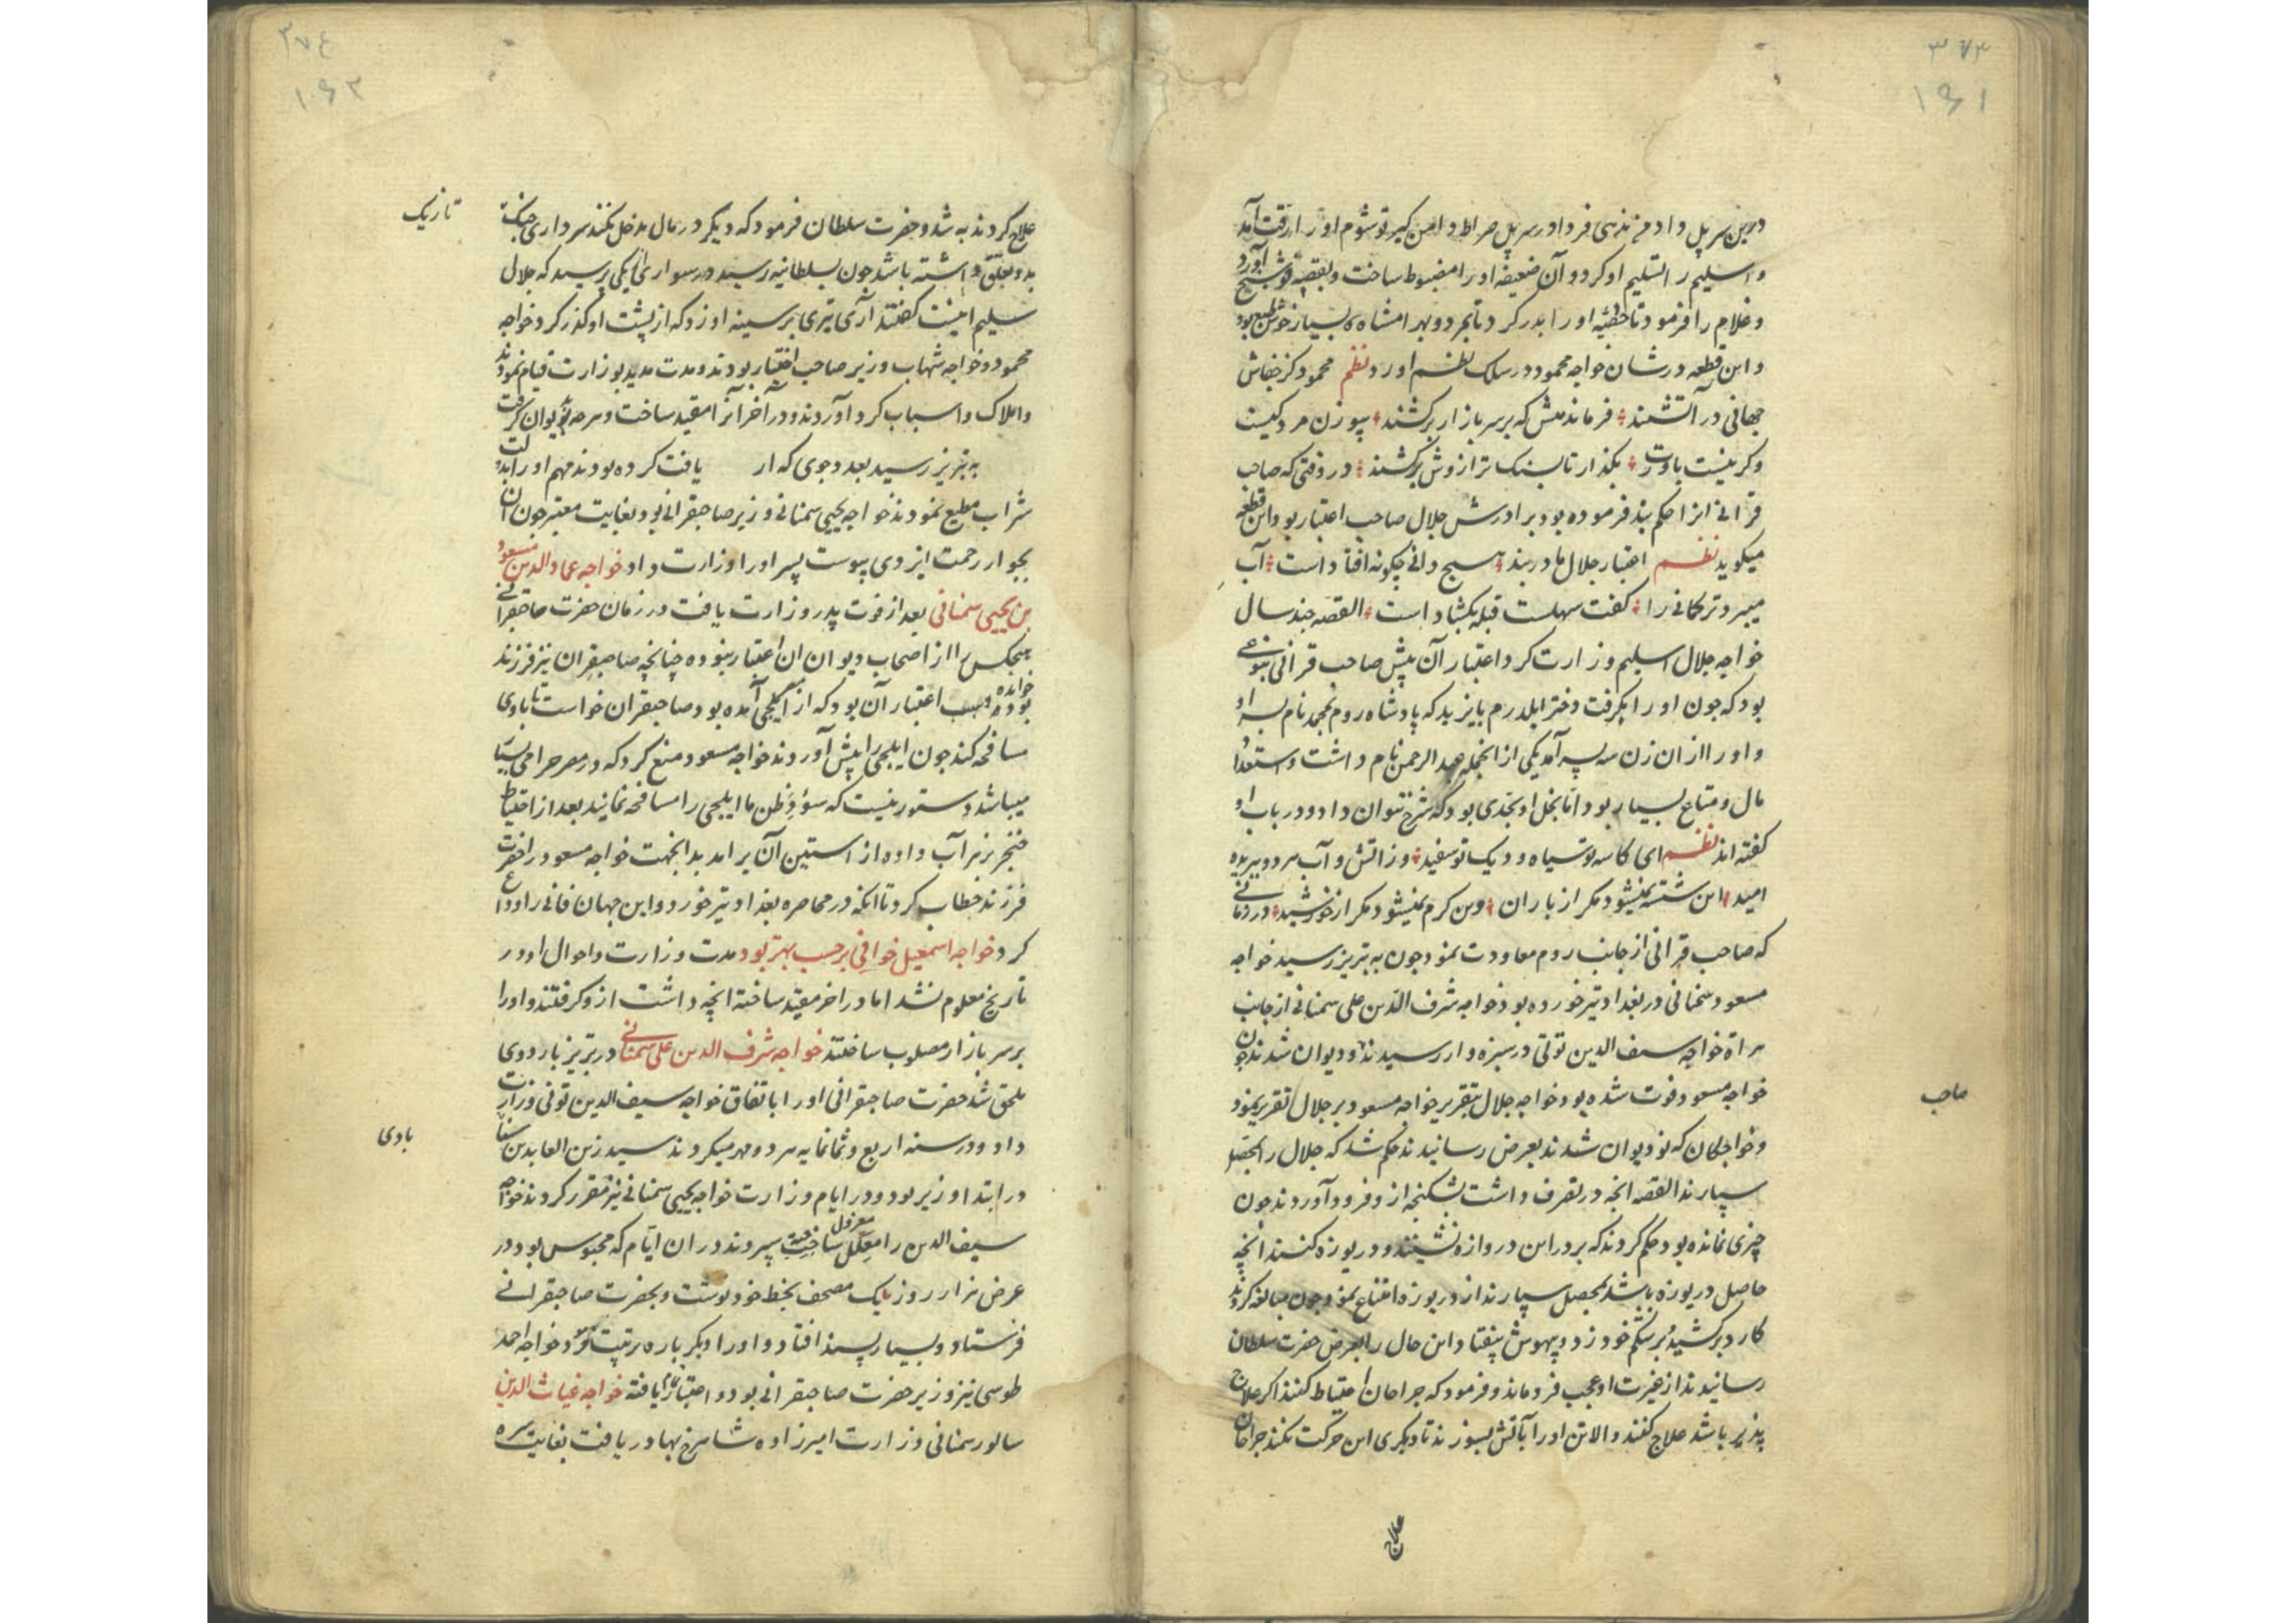 ۳۷۳
۱۶۱
درین سر پل داد من ندهی فردا در سر پل صراط دامن گیر تو شوم او را رقت آمد
و اسلیم را تسلیم او کرد و آن ضعیفه او را مضبوط ساخت و بقصبه قوشنج آورد
و غلام را فرمود تا خطبه او را بدر کرد تا بمرد و بهرامشاه بسیار خوش طبع بود
و این قطعه در شان خواجه محمود در سلک نظم آورد نظم محمود کز
جهانی در آتشند فرماندهش که بر سر بازار برکشند
وگر نیست باورت بگذار تا بسنک ترازوش برکشند در وقتی که صاحب
قرانی انرا حکم بند فرموده بود برادرش جلال صاحب اعتبار بود این قطعه
میگوید نظم اعتبار جلال ما در بند هیچ دانی چگونه افتاد است آب
میبرد ترکمانی را گفت سهلست قبله بگشاد است القصه چند سال
خواجه جلال اسلیم وزارت کرد اعتبار آن پیش صاحب قرانی بنوعی
بود که چون او را بگرفت دختر ایلدرم بایزید که پادشاه روم بمحمد نام پسر او
و او را از ان زن سه پسر آمد یکی از انجمله عبد الرحمن نام داشت و استعداد
مال و متاع بسیار بود اما بخل او بحدی بود که شرح نتوان داد و در باب او
گفته اند نظم ای کاسه تو سیاه و دیک تو سفید وز اتش و آب هر دو ببریده
امید این شسته نمیشود مگر از باران وین گرم نمیشود مگر از خورشید در زمانی
که صاحب قرانی از جانب روم معاودت نمود چون به تبریز رسید خواجه
مسعود سمنانی در بغداد تیر خورده بود خواجه شرف الدین علی سمنانی از جانب
هراة خواجه سیف الدین تونی در سبزوار رسیدند و دیوان شدند چون
خواجه مسعود فوت شده بود خواجه جلال بتقریر خواجه مسعود بر جلال تقریر نمود
صاحب
و خواجگان که نو دیوان شدند بعرض رسانیدند حکم شد که جلال را بمحصل
سپارند القصه انچه در تصرف داشت بشکنجه ازو فرود آوردند چون
چیزی نمانده بود حکم کردند که بر در این دروازه نشینند و دریوزه کنند انچه
حاصل دریوزه باشد بمحصل سپارند از دریوزه امتناع نمود چون مبالغه کردند
کارد برکشید و بر شکم خود زد و بیهوش بیفتاد این حال را بعرض حضرت سلطان
رسانیدند از غیرت او عجب فرو ماند و فرمود که جراحان احتیاط کنند اگر علاج
پذیر باشد علاج کنند و الا تن او را بآتش بسوزند تا دیگری این حرکت نکند جراحان
علاج
۳۷۴
۱۶۲
علاج کردند به شد و حضرت سلطان فرمود که دیگر در مال مدخل نکند سرداری جنگ
تازیک
بدو تعلق داشته باشد چون بسلطانیه رسید در سواری از یکی پرسید که جلال
سلیم اینست گفتند آری تیری بر سینه او زد که از پشت او گذر کرد خواجه
محمود و خواجه شهاب وزیر صاحب اختیار بودند و مدت مدید بوزارت قیام نمودند
و املاک و اسباب گرد آوردند و در آخر آنرا مقید ساخت و هر چه بود دیوان گرفت
به تبریز رسید بعد وجوی که از یافت کرده بودند مهم او را بدولت
شراب مطیع نمودند خواجه یحیی سمنانی وزیر صاحبقرانی بود بغایت معتبر چون آن
بجوار رحمت ایزدی پیوست پسر او را وزارت داد خواجه عماد الدین مسعود
بن یحیی سمنانی بعد از فوت پدر وزارت یافت در زمان حضرت صاحبقرانی
هیچکس را از اصحاب دیوان ان اعتبار نبوده چنانچه صاحبقران نیز فرزند
خوانده بوده و سبب اعتبار آن بود که از ایلچی آمده بود صاحبقران خواست تا با وی
مسافحه کند چون ایلچی را پیش آوردند خواجه مسعود منع کرد که در مصر حرامی بسیار
میباشد و دستور نیست که سوء ظن ما ایلچی را مسافحه نمایند بعد از احتیاط
خنجر بزهر آب داده از استین آن برامد بدانجهت خواجه مسعود را حضرت
فرزند خطاب کرد تا انکه در محاصره بغداد تیر خورد و این جهان فانی را وداع
کرد خواجه اسمعیل خوافی برحسب بهتر بود مدت وزارت و احوال او در
تاریخ معلوم نشد اما در اخر مقید ساخته انچه داشت ازو گرفتند و او را
بر سر بازار مصلوب ساختند خواجه شرف الدین علی سمنانی در تبریز باردوی
ملحق شد حضرت صاحبقرانی او را باتفاق خواجه سیف الدین تونی وزارت
داد و در سنه اربع و ثمانمایه هر دو مهر میکردند سید زین العابدین
بادی
در ابتدا وزیر بود و در ایام وزارت خواجه یحیی سمنانی نیز مقرر کردند خواجه
سیف الدین را معزول ساخته سپردند در ان ایام که محبوس بود در
عرض نزار روز یک مصحف بخط خود نوشت و بحضرت صاحبقرانی
فرستاد و بسیار پسند افتاد و او را دیگر باره تربیت نمود و خواجه احمد
طوسی نیز وزیر حضرت صاحبقرانی بود و اعتبار یافته خواجه غیاث الدین
سالور سمنانی وزارت امیرزاده شاهرخ بهادر یافت بغایت سره